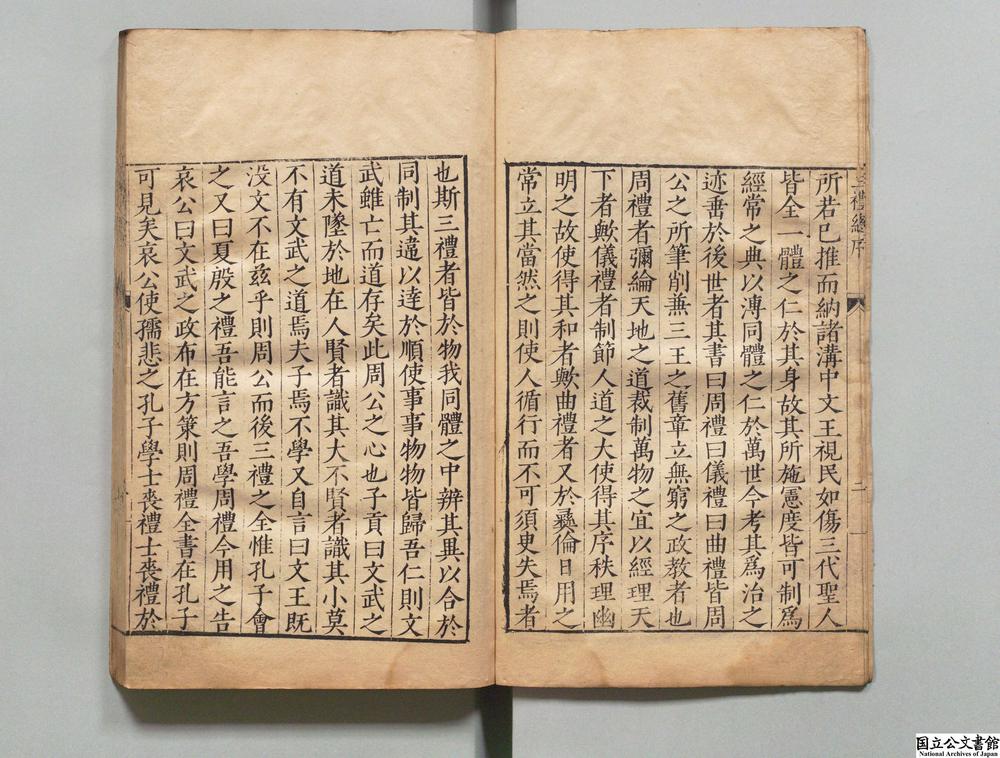 三禮總序
二
所若已推而納諸溝中文王視民如傷三代聖人
皆全一體之仁於其身故其所施憲度皆可制爲
經常之典以溥同體之仁於萬世今考其爲治之
迹垂於後世者其書曰周禮曰儀禮曰曲禮皆周
公之所筆削兼三王之舊章立無窮之政教者也
周禮者彌綸天地之道裁制萬物之宜以經理天
下者歟儀禮者制節人道之大使得其序秩理幽
明之故使得其和者歟曲禮者又於彞倫日用之
常立其當然之則使人循行而不可須臾失焉者
也斯三禮者皆於物我同體之中辨其異以合於
同制其違以達於順使事事物物皆歸吾仁則文
武雖亡而道存矣此周公之心也子貢曰文武之
道未墜於地在人賢者識其大不賢者識其小莫
不有文武之道焉夫子焉不學又自言曰文王既
没文不在兹乎則周公而後三禮之全惟孔子會
之又曰夏殷之禮吾能言之吾學周禮今用之告
哀公曰文武之政布在方策則周禮全書在孔子
可見矣哀公使孺悲之孔子學士喪禮士喪禮於
国立公文書館
National Archives of Japan